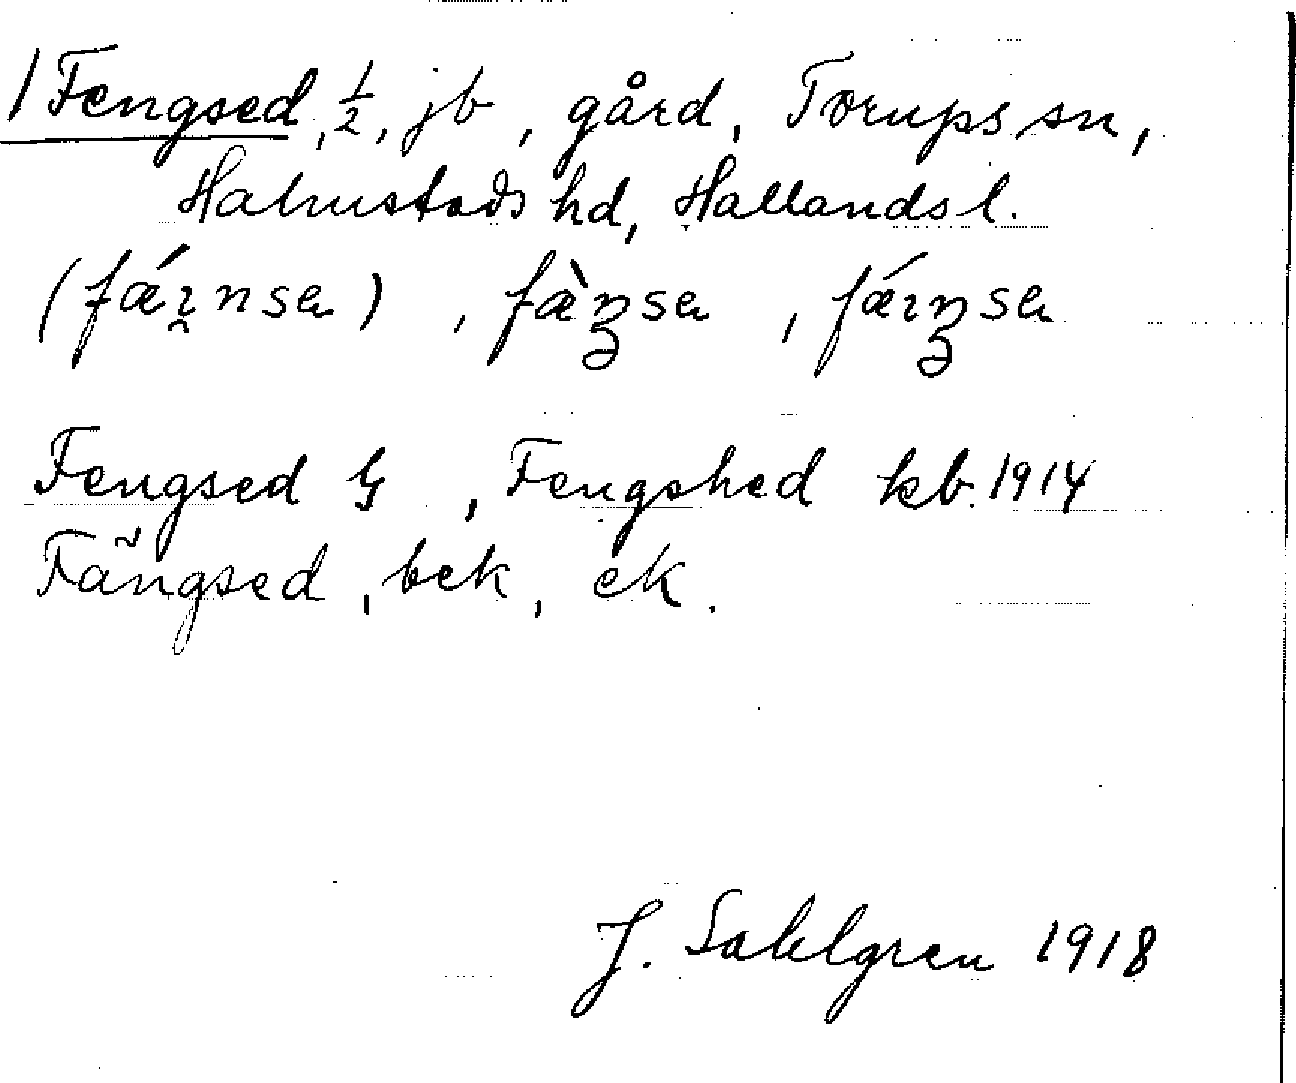 1 Fengsed, ½, jb, gård, Torups sn,
Halmstads hd, Hallands l.
Fengsed G, Fengshed kb. 1914
Fängsed, bek, ek.
J. Sahlgren 1918